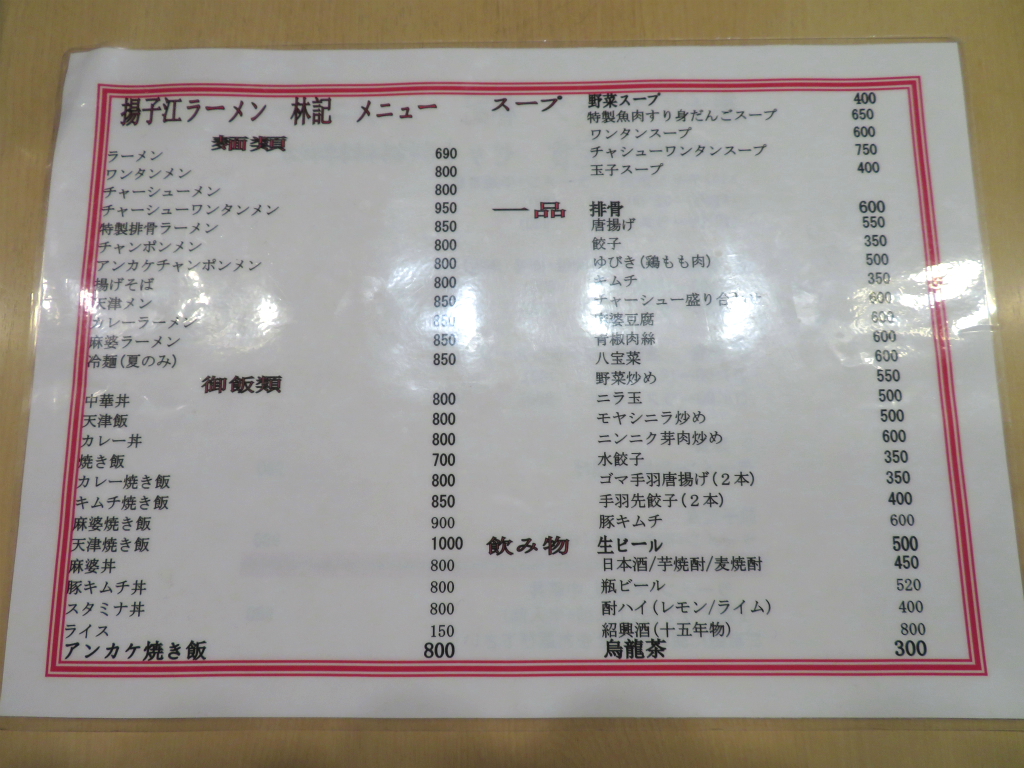 揚子江ラーメン 林記 メニュー
麺類
ラーメン 690
ワンタンメン 800
チャーシューメン 800
チャーシューワンタンメン 950
特製排骨ラーメン 850
チャンポンメン 800
アンカケチャンポンメン 800
揚げそば 800
天津メン 850
カレーラーメン 850
麻婆ラーメン 850
冷麺(夏のみ) 850
御飯類
中華丼 800
天津飯 800
カレー丼 800
焼き飯 700
カレー焼き飯 800
キムチ焼き飯 850
麻婆焼き飯 900
天津焼き飯 1000
麻婆丼 800
豚キムチ丼 800
スタミナ丼 800
ライス 150
アンカケ焼き飯 800
スープ 野菜スープ 400
特製魚肉すり身だんごスープ 650
ワンタンスープ 600
チャシューワンタンスープ 750
玉子スープ 400
一品 排骨 600
唐揚げ 550
餃子 350
ゆびき(鶏もも肉) 500
キムチ 350
チャーシュー盛り合わせ 600
麻婆豆腐 600
青椒肉絲 600
八宝菜 600
野菜炒め 550
ニラ玉 500
モヤシニラ炒め 500
ニンニク芽肉炒め 600
水餃子 350
ゴマ手羽唐揚げ(2本) 350
手羽先餃子(2本) 400
豚キムチ 600
飲み物 生ビール 500
日本酒/芋焼酎/麦焼酎 450
瓶ビール 520
酎ハイ(レモン/ライム) 400
紹興酒(十五年物) 800
烏龍茶 300